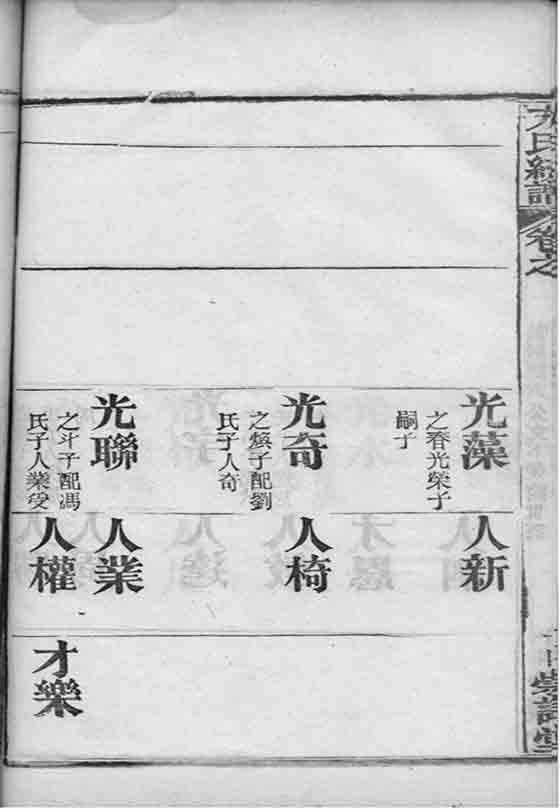 氏統譜 卷之
光藻
之春光榮子
嗣子
人新
光奇
之煥子配劉
氏子人奇
人椅
光聯
之斗子配馮
氏子人業
人業
人權
才樂